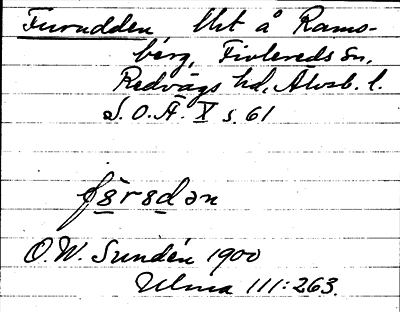 Furudden lht å Rams-
berg, Finlereds sn,
Redvägs hd, Älvsb. l.
S.O.Ä. X s. 61
fɷ̀rɷdən
O.W. Sundén 1900
Ulma 111:263.